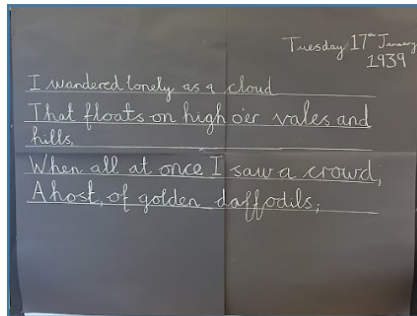 Tuesday 17th January
1939
I wandered lonely as a cloud
That floats on high o'er vales and
hills,
When all at once I saw a crowd,
A host, of golden daffodils;